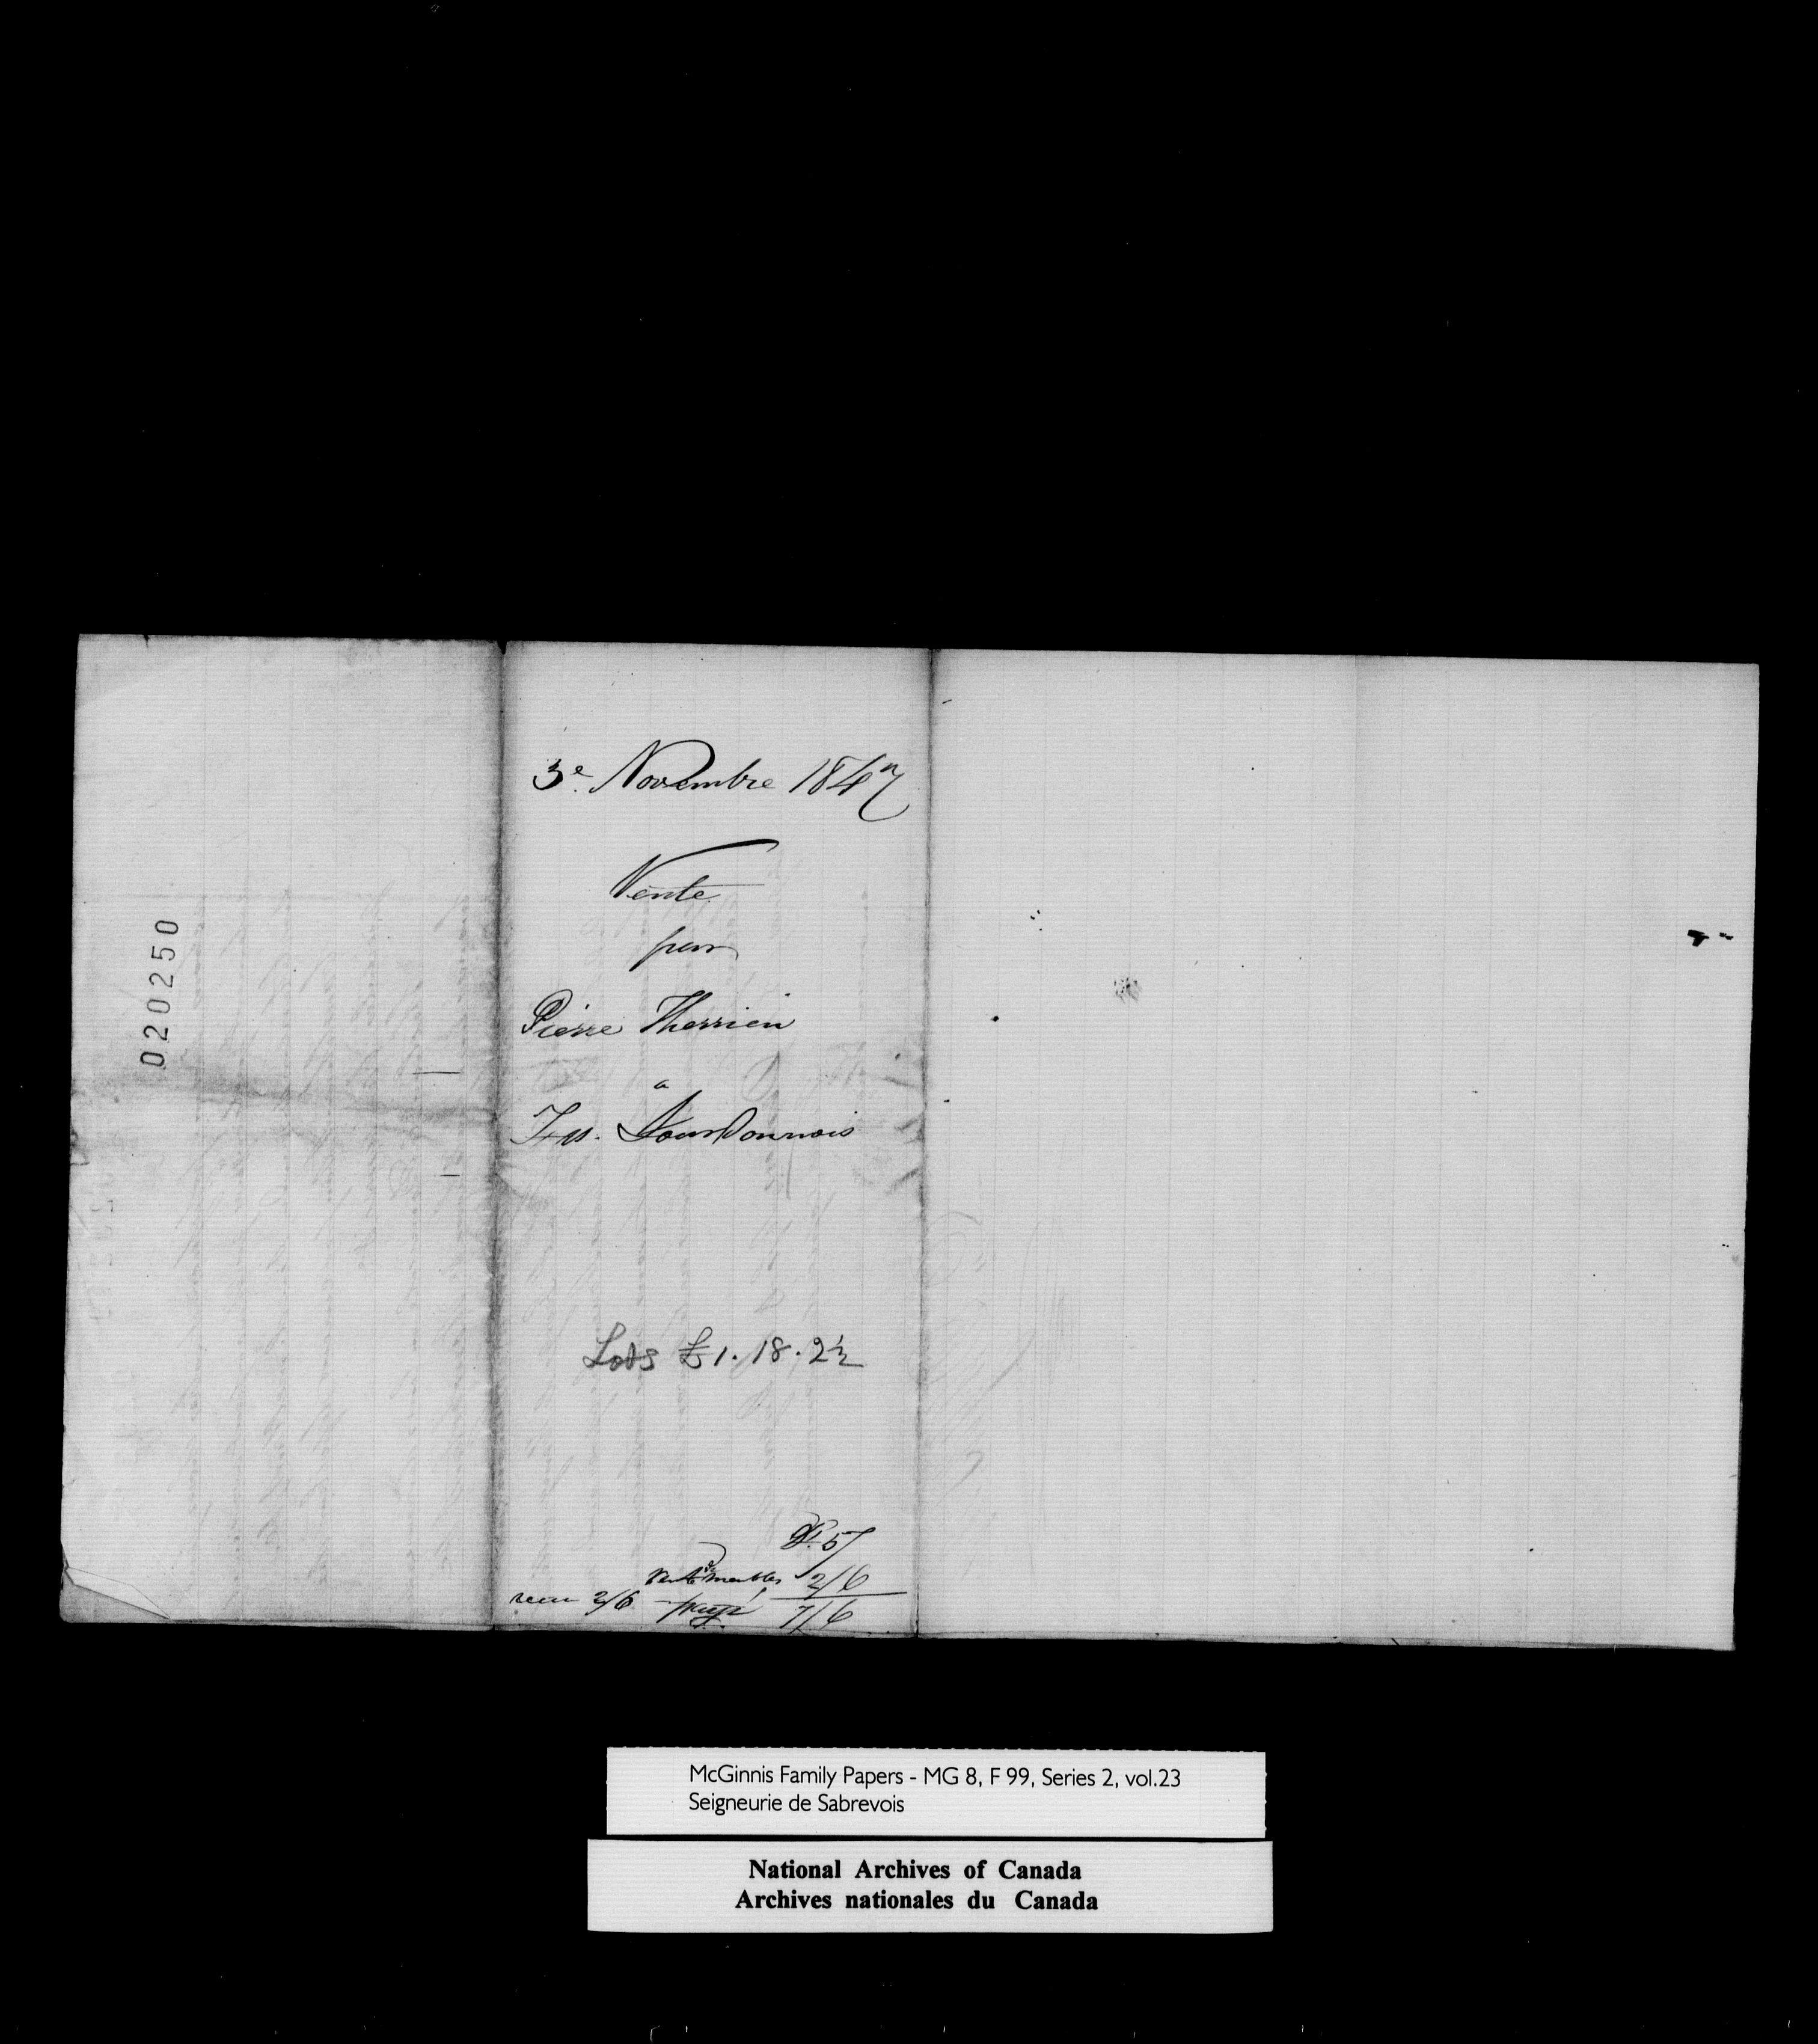 020250
3e. Novembre 1847
Vente
par
Pierre Therrien
a
Frs. Bourdonnois
Lods £1.18.2½
5/
Vente de meubles 2/6
recu 2/6 7/6
McGinnis Family Papers - MG 8, F 99, Series 2, vol.23
Seigneurie de Sabrevois
National Archives of Canada
Archives nationales du Canada